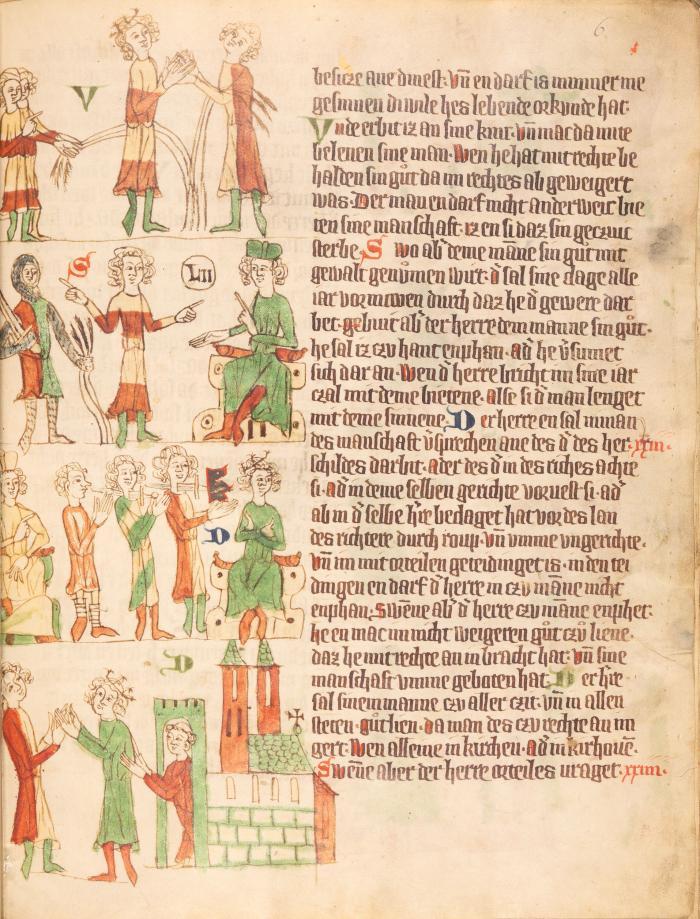 6
V
S
LII
D
D
besitze ane dinest· vn̄ en darf is nimmer me
gesinnen di wile hes lebende orkunde hat·
Vnde erbit iz an sine kint· vn̄ mac da mite
belenen sine man· Wen he hat mit rechte be
halden sin gůt da im rechtes ab geweigert
was· Der man en darf nicht anderweit bie
ten sine manschaft· iz en si daz sin gezuic
sterbe S wo ab deme māne sin gut mit
gewalt genůmen wirt· d̓ sal sine clage alle
iar vornuwen durch daz he d̓ gewere dar
bet· gebiut ab̓ der herre dem manne sin gůt·
he sal iz czv hant enphan· ad̓ he v̓sumet
sich dar an· Wen d̓ herre bricht im sine iar
czal mit deme bietene· alse si d̓ man lenget
mit deme sinnene· D er herre en sal niman
des manschaft v̓sprechen ane des d̓ des her·xxiii·
schildes darbit· ader des d̓ in des riches achte
si· ad̓ in deme selben gerichte vorvest si· ad̓
ab in d̓ selbe h̓re beclaget hat vor des lan
des richtere durch roup· vn̄ vmme vngerichte·
vn̄ im mit orteilen geteidinget is· in den tei
dingen en darf d̓ herre in czu māne nicht
enphan· Swēne ab̓ d̓ herre czu māne enphet·
he en mac im nicht weigeren gůt czů liene·
daz he mit rechte an in bracht hat· vn̄ sine
manschaft vmme geboten hat· D er h̓re
sal sinem manne czu aller czit· vn̄ in allen
steten· gůt lien· da man des czu rechte an im
gert· Wen alleine in kirchen· ad̓ in kirhoue·
Swēne aber der herre orteiles vraget·xxiiii·